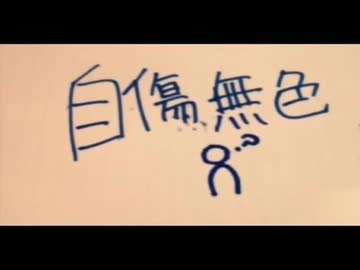 自傷無色